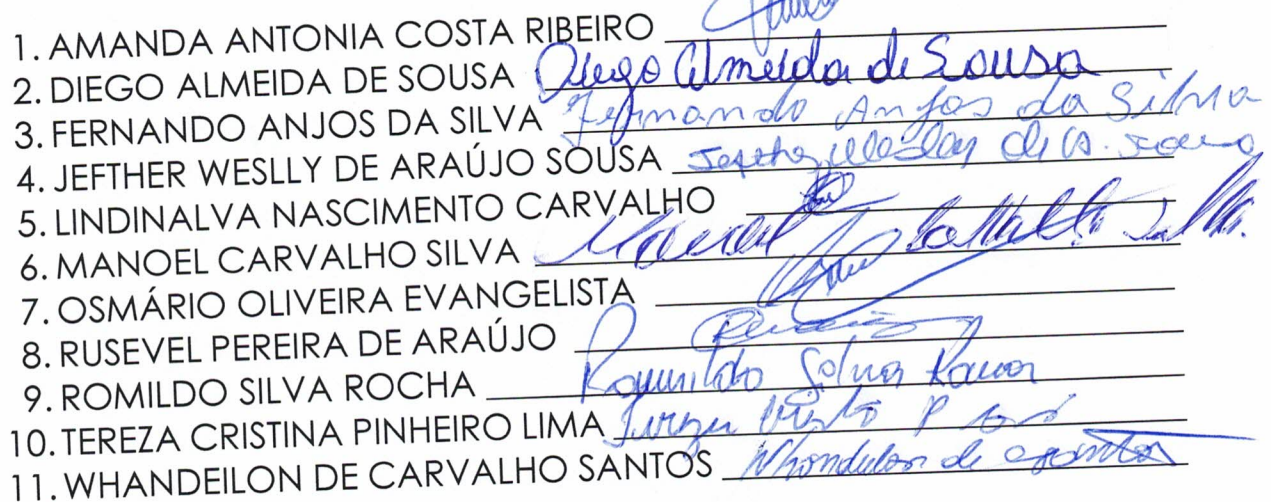 1. AMANDA ANTONIA COSTA RIBEIRO
2. DIEGO ALMEIDA DE SOUSA Diego Almeida de Sousa
3. FERNANDO ANJOS DA SILVA Fernando Anjos da Silva
4. JEFTHER WESLLY DE ARAÚJO SOUSA Jefther Weslley de A. Sousa
5. LINDINALVA NASCIMENTO CARVALHO
6. MANOEL CARVALHO SILVA Manoel Carvalho Silva
7. OSMÁRIO OLIVEIRA EVANGELISTA
8. RUSEVEL PEREIRA DE ARAÚJO
9. ROMILDO SILVA ROCHA Romildo Silva
10. TEREZA CRISTINA PINHEIRO LIMA
11. WHANDEILON DE CARVALHO SANTOS Whondeilon de